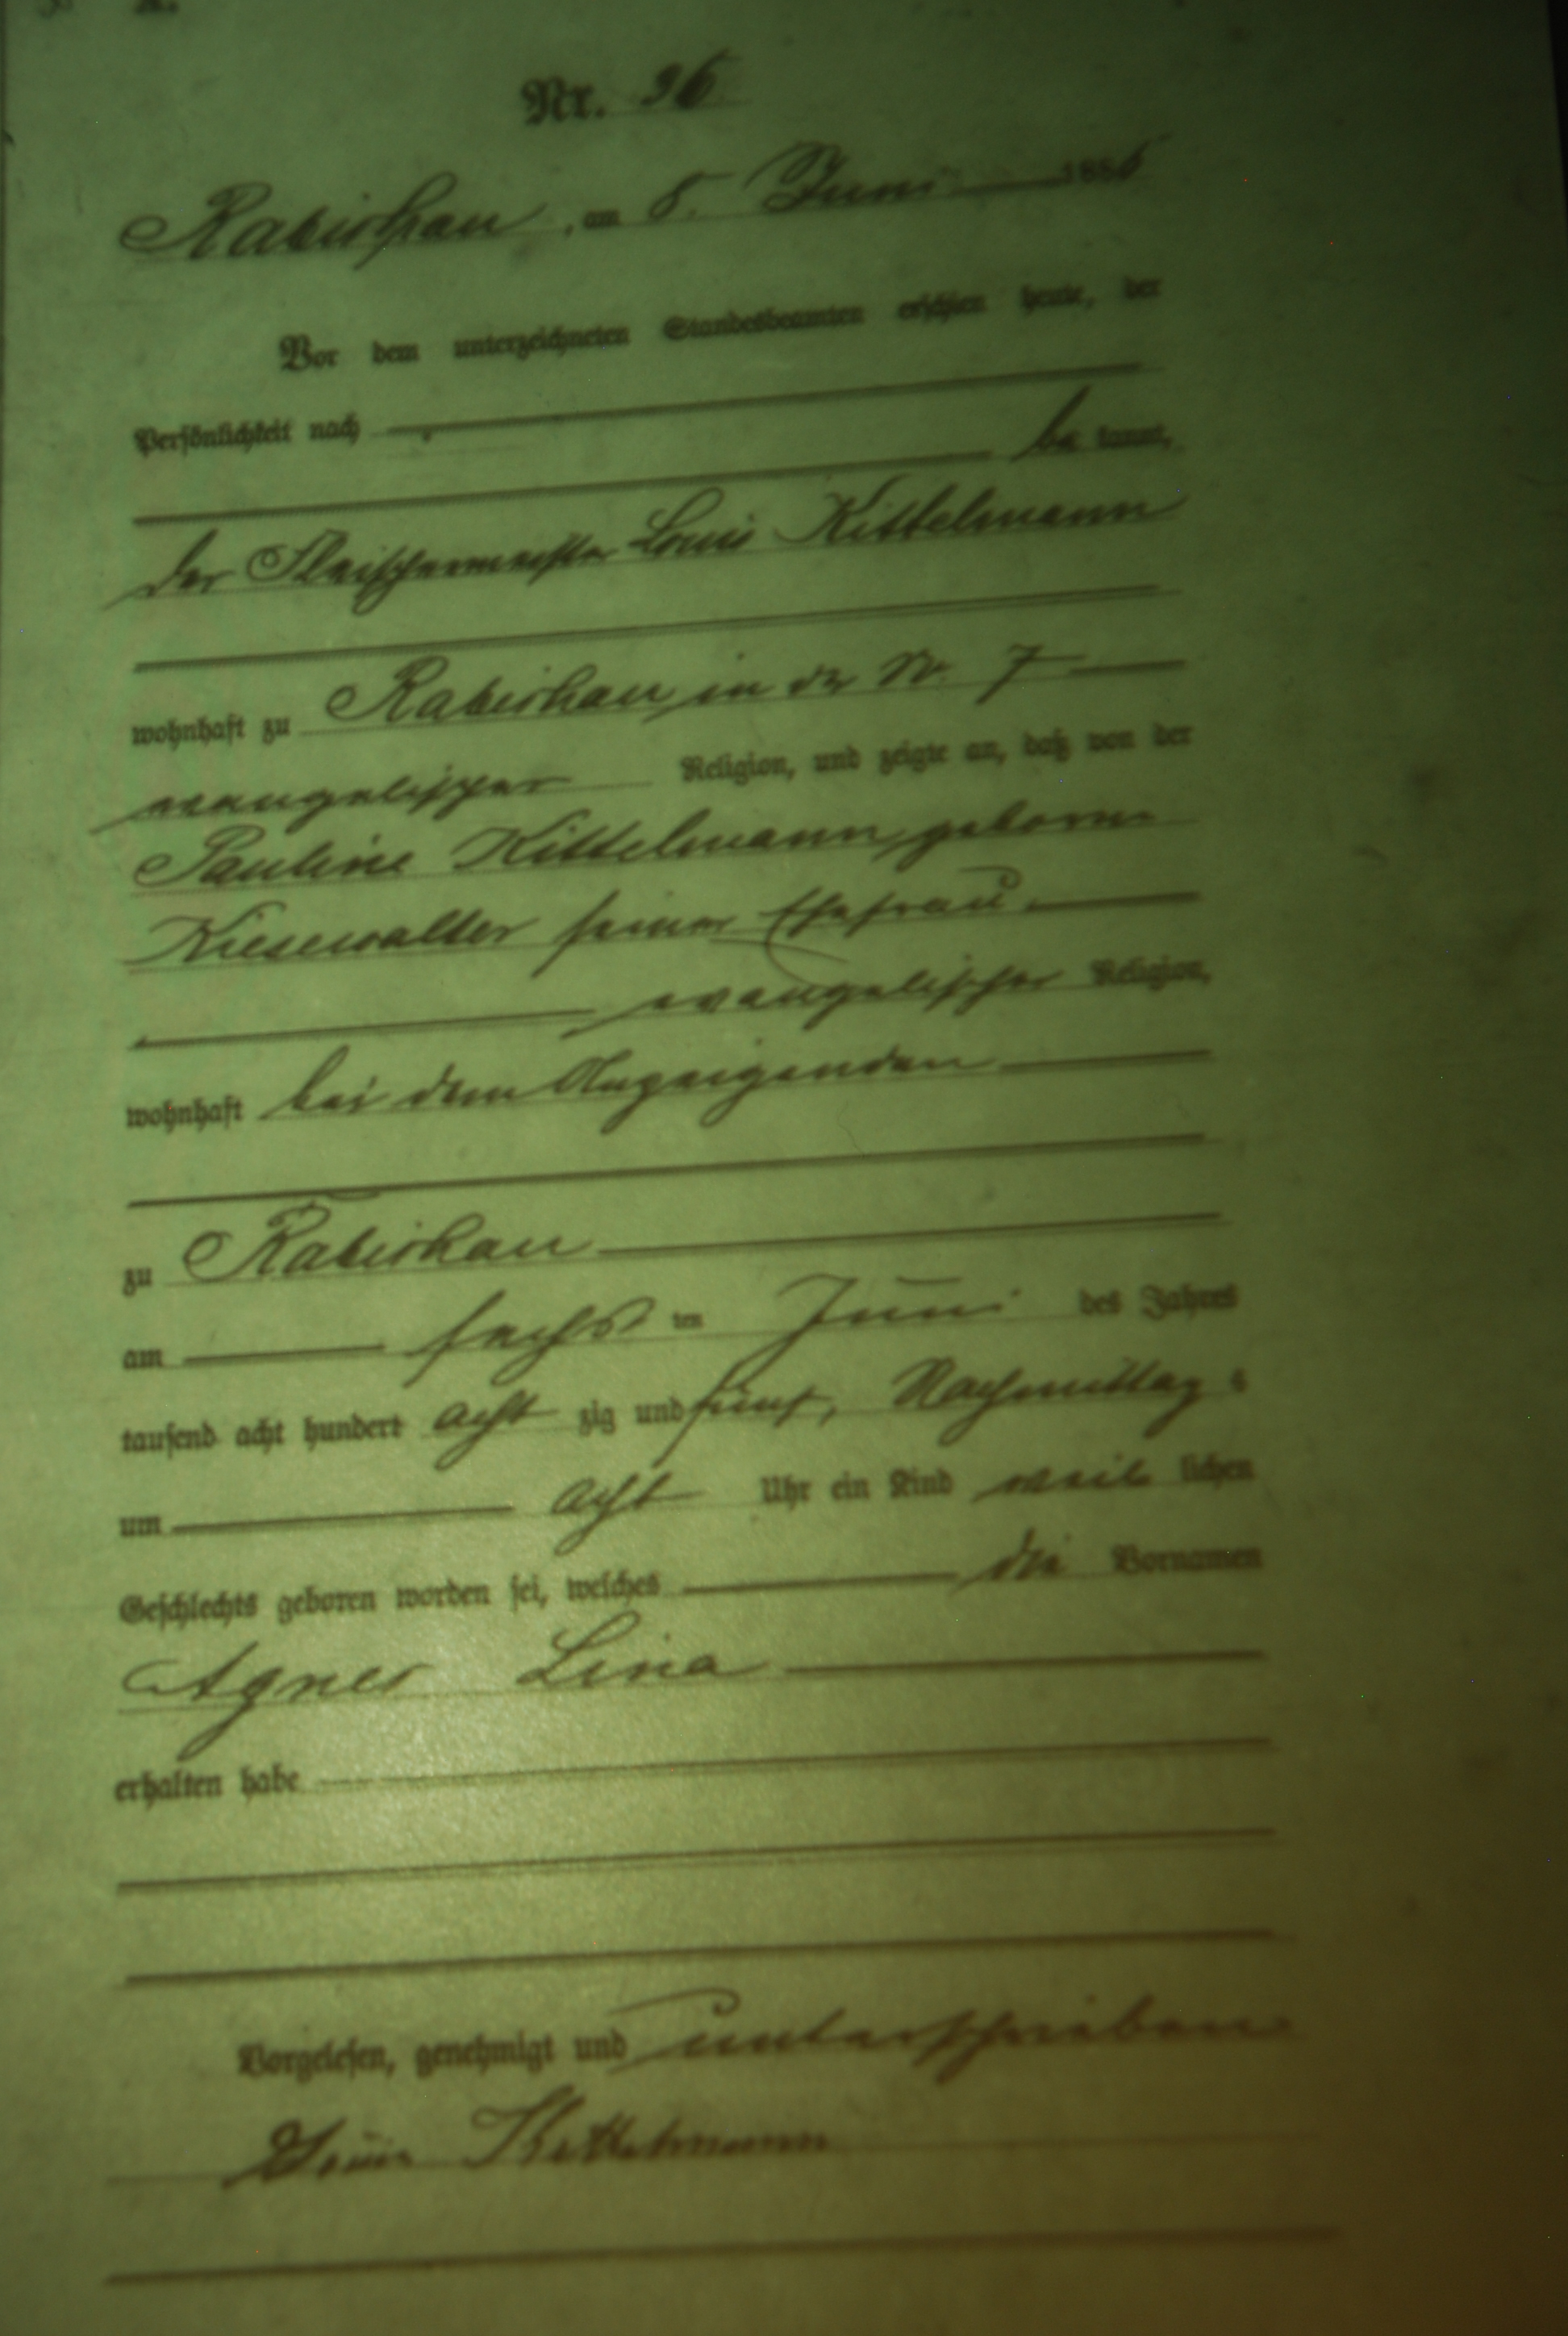 Nr. 36
Rabishau, am 8. Juni 1885
Vor dem unterzeichneten Standesbeamten erschien heute, der
Persönlichkeit nach
be kannt,
der Fleischermeister Louis Kittelmann
wohnhaft zu Rabishau in der No. 7
evangelischer Religion, und zeigte an, daß von der
Pauline Kittelmann geborne
Kiesewalter seiner Ehefrau,
evangelischer Religion,
wohnhaft bei dem Anzeigenden
zu Rabishau
am sechs ten Juni des Jahres
tausend acht hundert acht zig und fünf, Nachmittag s
um acht Uhr ein Kind weib lichen
Geschlechts geboren worden sei, welches die Vornamen
Agnes Lina
erhalten habe
Vorgelesen, genehmigt und unterschrieben
Louis Kittelmann